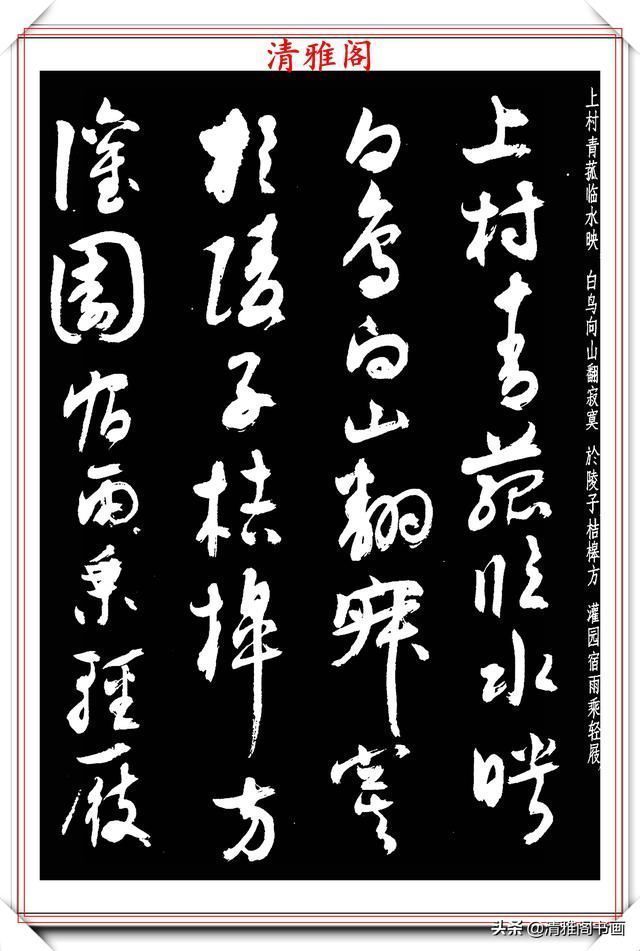 清雅阁
上村青菰临水映
白鸟向山翻寂寞
於陵子桔槔方
灌园宿雨乘轻屐
上村青菰临水映 白鸟向山翻寂寞 於陵子桔槔方 灌园宿雨乘轻屐
头条@清雅阁书画